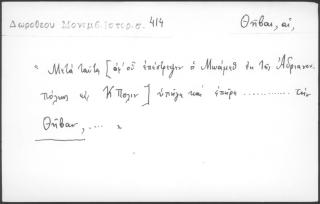 Δωροθέου Μονεμβ. Ιστορ. σ. 414
Θῆβαι, αἱ,
“ Μετὰ ταῦτα [ἀφ' οὗ ἐπέστρεψεν ὁ Μπάμεθ ἐκ τῆς Ἀδριανου-
πόλεως εἰς ΚΠολιν] ὑπῆγε καὶ ἐπῆρε .............. τὴν
Θῆβαν, .... ”